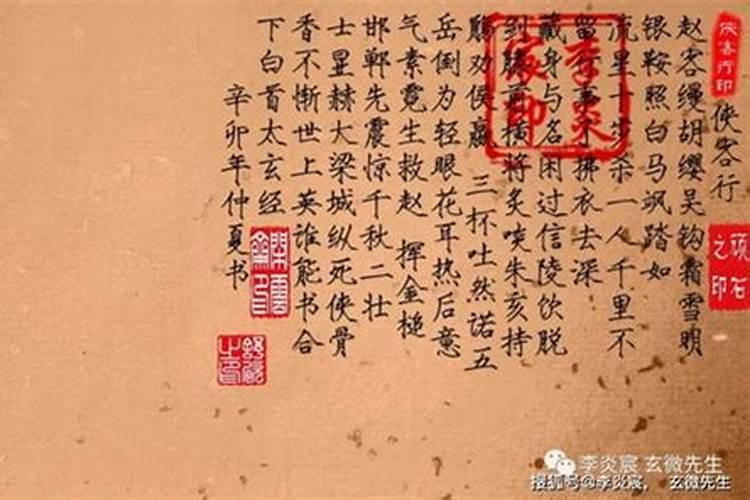 侠客行印
俠客行
之印
赵客缦胡缨吴钩霜雪明
银鞍照白马飒踏如
流星十步杀一人千里不
留行事了拂衣去深
藏身与名闲过信陵饮脱
剑膝前横将炙啖朱亥持
觞劝侯嬴 三杯吐然诺五
岳倒为轻眼花耳热后意
气素霓生救赵 挥金槌
邯郸先震惊千秋二壮
士赫大梁城纵死侠骨
香不惭世上英谁能书合
下白首太玄经
辛卯年仲夏书
李炎宸印
李炎宸 玄微先生
搜狐号@李炎宸，玄微先生